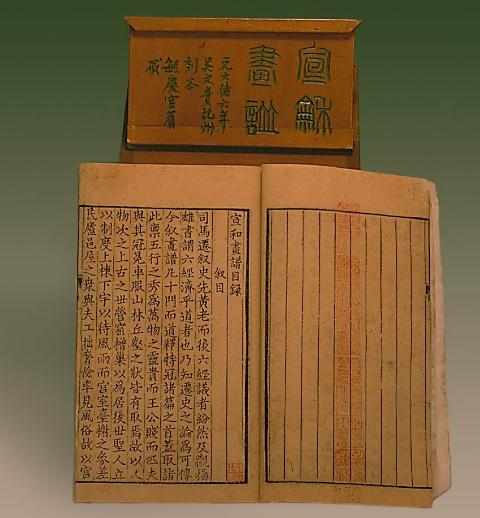 宣龢
畫譜
元大德六年
吳文貴杭州
刻本
毓慶宮舊
藏
宣和畫譜目録
叙目
司馬遷叙史先黄老而後六經議者紛然及觀揚
雄書謂六經濟乎道者也乃知遷史之論為可傳
今叙畫譜凡十門而道釋特冠諸篇之首蓋取諸
此禀五行之秀為萬物之靈貴而王公賤而匹夫
與其冠冕車服山林丘壑之狀皆有取焉故以人
物次之上古之世營窟橧巢以為居後世聖人立
以制度上棟下宇以待風雨而宮室臺榭之參差
民廬邑屋之衆與夫工拙奢儉率見風俗故以宮